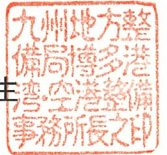 九州地方整
備局博多港
湾・空港整備
事務所長之印